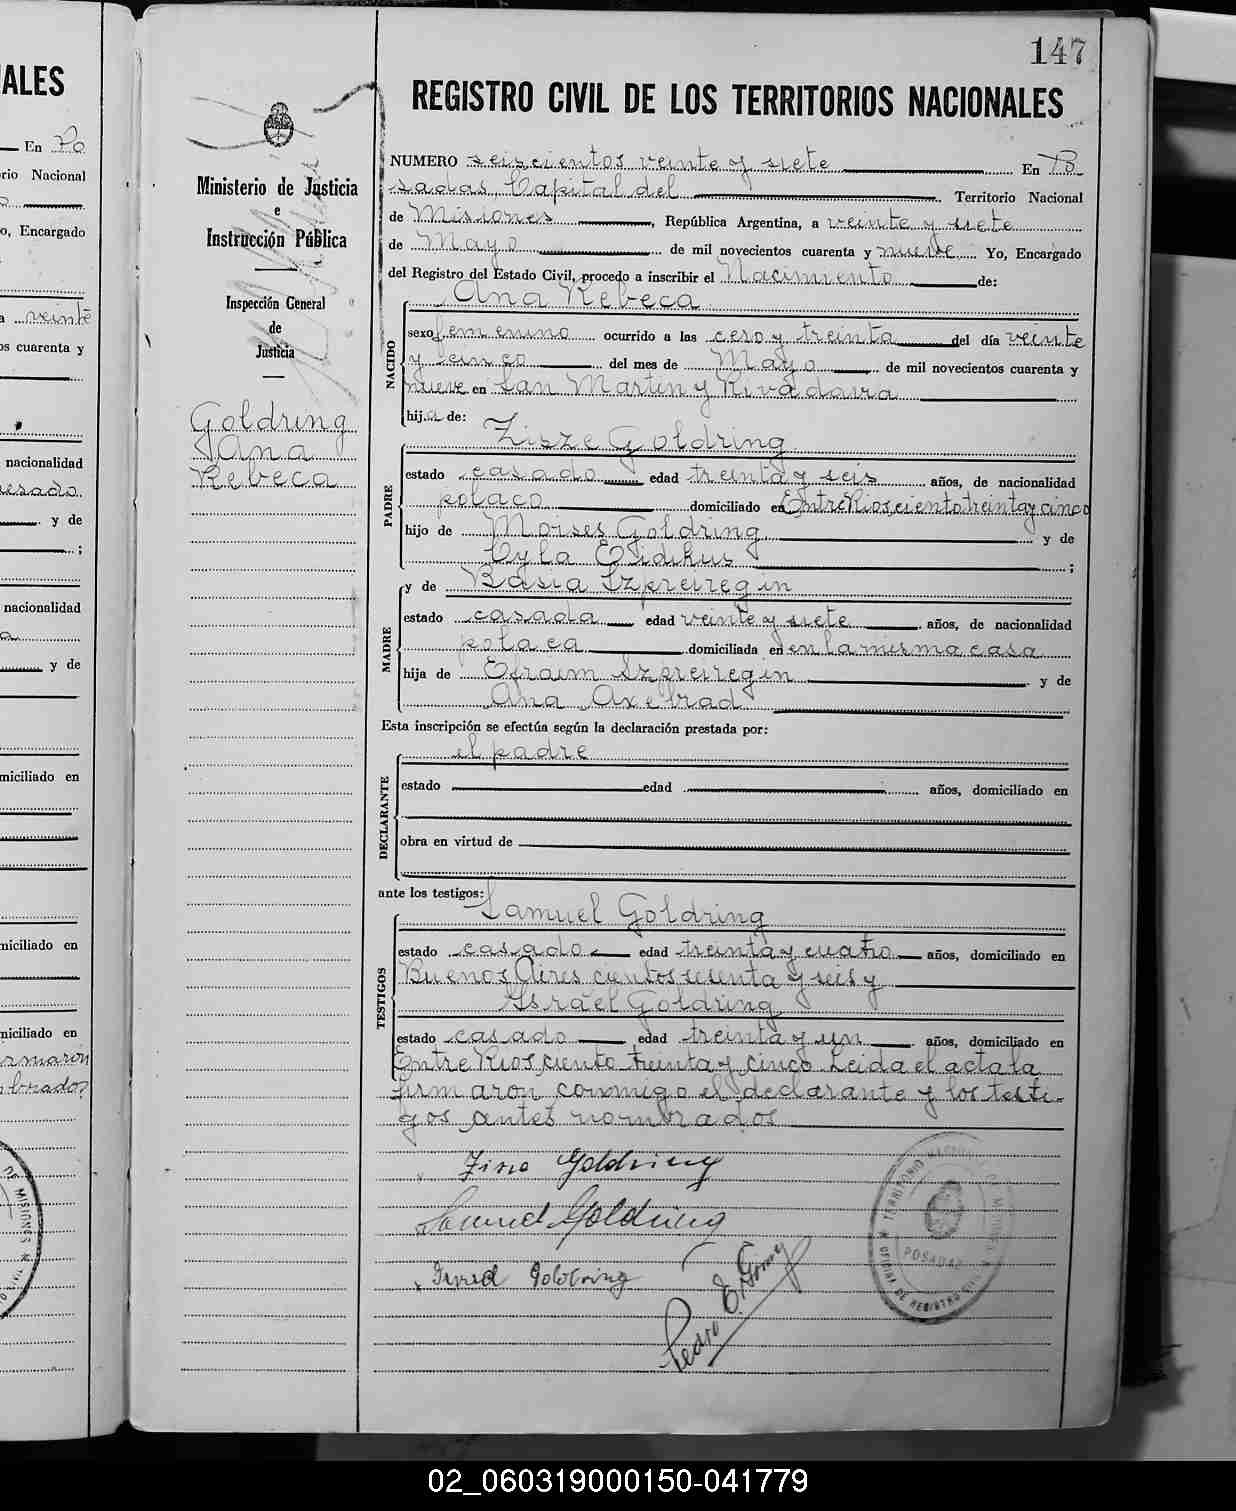 147
REGISTRO CIVIL DE LOS TERRITORIOS NACIONALES
NUMERO seiscientos veinte y siete En Po
sadas Capital del Territorio Nacional
de Misiones, República Argentina, a veinte y siete
de Mayo de mil novecientos cuarenta y nueve Yo, Encargado
del Registro del Estado Civil, procedo a inscribir el Nacimiento de:
NACIDO
Ana Rebeca
sexo femenino ocurrido a las cero y treinta del día veinte
y cinco del mes de Mayo de mil novecientos cuarenta y
nueve en San Martin y Rivadavia
hija de:
PADRE
Zisze Goldring
estado casado edad treinta y seis años, de nacionalidad
polaco domiciliado en Entre Rios ciento treinta y cinco
hijo de Moises Goldring y de
Cyla ;
MADRE
y de Basia Szpreiregin
estado casada edad veinte y siete años, de nacionalidad
polaca domiciliada en en la misma casa
hija de Efraim Szpreiregin y de
Ana Axelrad
Esta inscripción se efectúa según la declaración prestada por:
DECLARANTE
el padre
estado edad años, domiciliado en
obra en virtud de
ante los testigos:
TESTIGOS
Samuel Goldring
estado casado edad treinta y cuatro años, domiciliado en
Buenos Aires ciento sesenta y seis y
Israel Goldring
estado casado edad treinta y un años, domiciliado en
Entre Rios ciento treinta y cinco Leida el acta la
firmaron conmigo el declarante y los testi-
gos antes nombrados
Goldring
Samuel Goldring
Israel Goldring
Pedro E. Gomez
TERRITORIO NACIONAL DE MISIONES
POSADAS
OFICINA DE REGISTRO CIVIL
Ministerio de Justicia
e
Instrucción Pública
Inspección General
de
Justicia
Goldring
Ana
Rebeca
IALES
En Po
rio Nacional
o, Encargado
a veinte
os cuarenta y
nacionalidad
y de
;
nacionalidad
y de
miciliado en
niciliado en
niciliado en
firmaron
mbrados
DE MISIONES
02_060319000150-041779